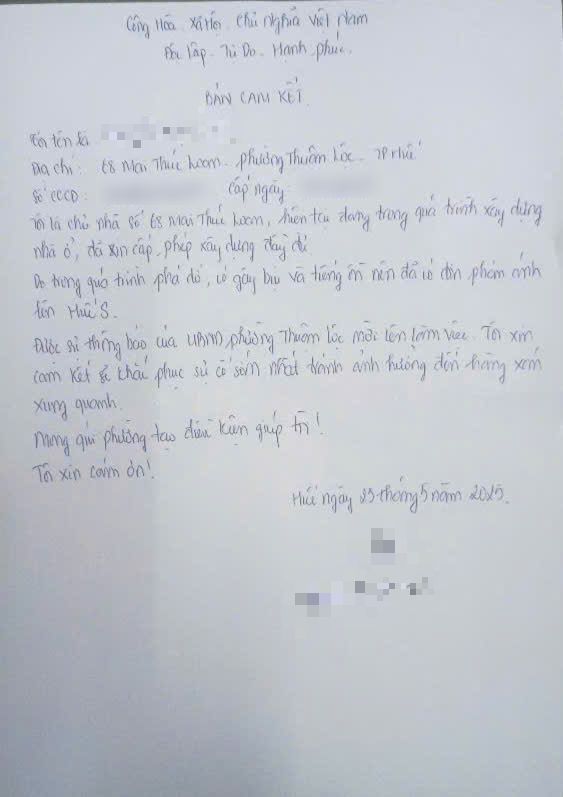 Cộng Hòa Xã Hội Chủ Nghĩa Việt Nam
Độc Lập - Tự Do - Hạnh phúc.
BẢN CAM KẾT
Tôi tên là
Địa chỉ: 68 Mai Thúc Loan - phường Thuận Lộc - TP Huế
Số CCCD: Cấp ngày:
Tôi là chủ nhà số 68 Mai Thúc Loan, hiện tại đang trong quá trình xây dựng
nhà ở, đã xin cấp phép xây dựng đầy đủ
Do trong quá trình phá dỡ, có gây bụi và tiếng ồn nên đã có đơn phản ánh
lên Huế S.
Được sự thông báo của UBND phường Thuận Lộc mời lên làm việc. Tôi xin
cam kết sẽ khắc phục sự cố sớm nhất tránh ảnh hưởng đến hàng xóm
xung quanh.
Mong quí phường tạo điều kiện giúp tôi!
Tôi xin cảm ơn!
Huế ngày 23 tháng 5 năm 2025.